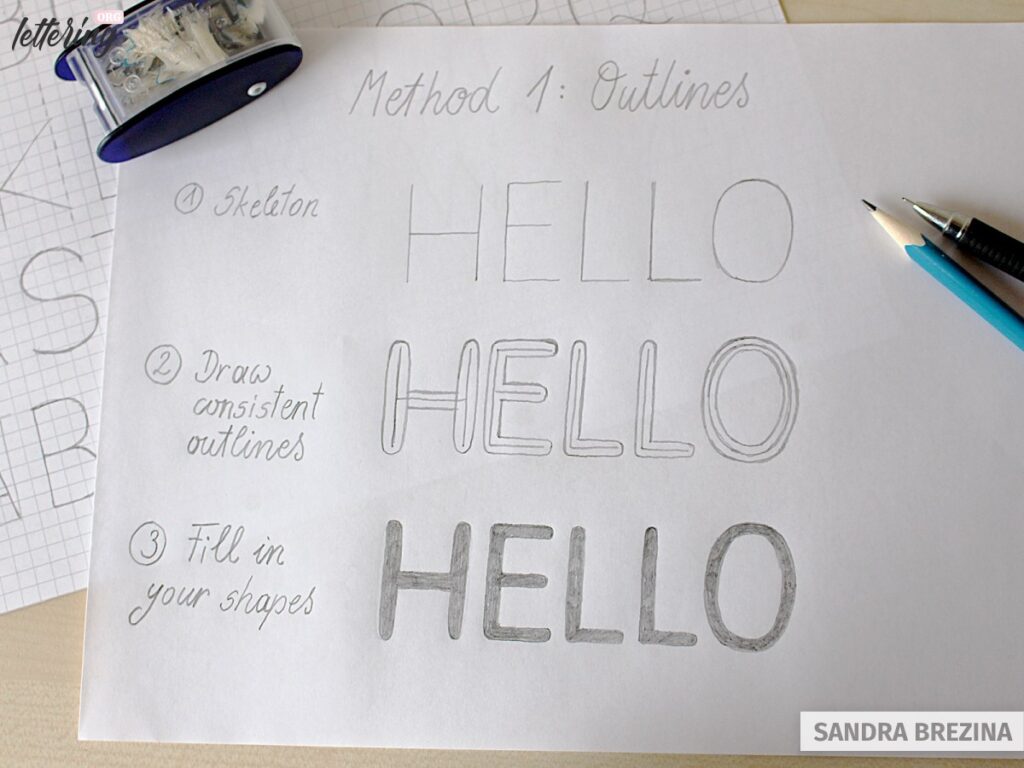 lettering.ORG
Method 1: Outlines
1 Skeleton
HELLO
2 Draw
consistent
outlines
HELLO
3 Fill in
your shapes
HELLO
SANDRA BREZINA